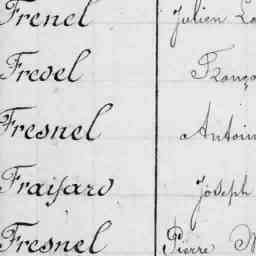 Frenel Julien
Fresel Franço
Fresnel Antoin
Fraisard Joseph
Fresnel Pierre